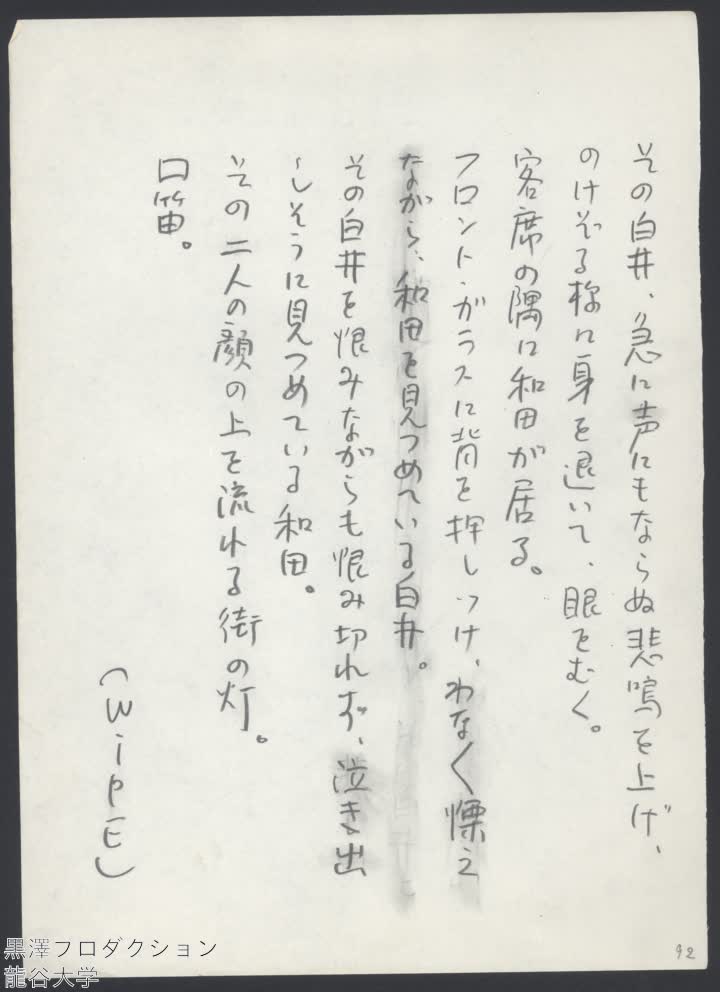 その白井、急に声にもならぬ悲鳴を上げ、
のけぞる様に身を退いて、眼をむく。
客席の隅に和田が居る。
フロント・ガラスに背を押しつけ、わなく慄え
ながら、和田を見つめている白井。
その白井を恨みながらも恨み切れず、泣き出
しそうに見つめている和田。
その二人の顔の上を流れる街の灯。
口笛。
(WipE)
92
黒澤プロダクション
龍谷大学